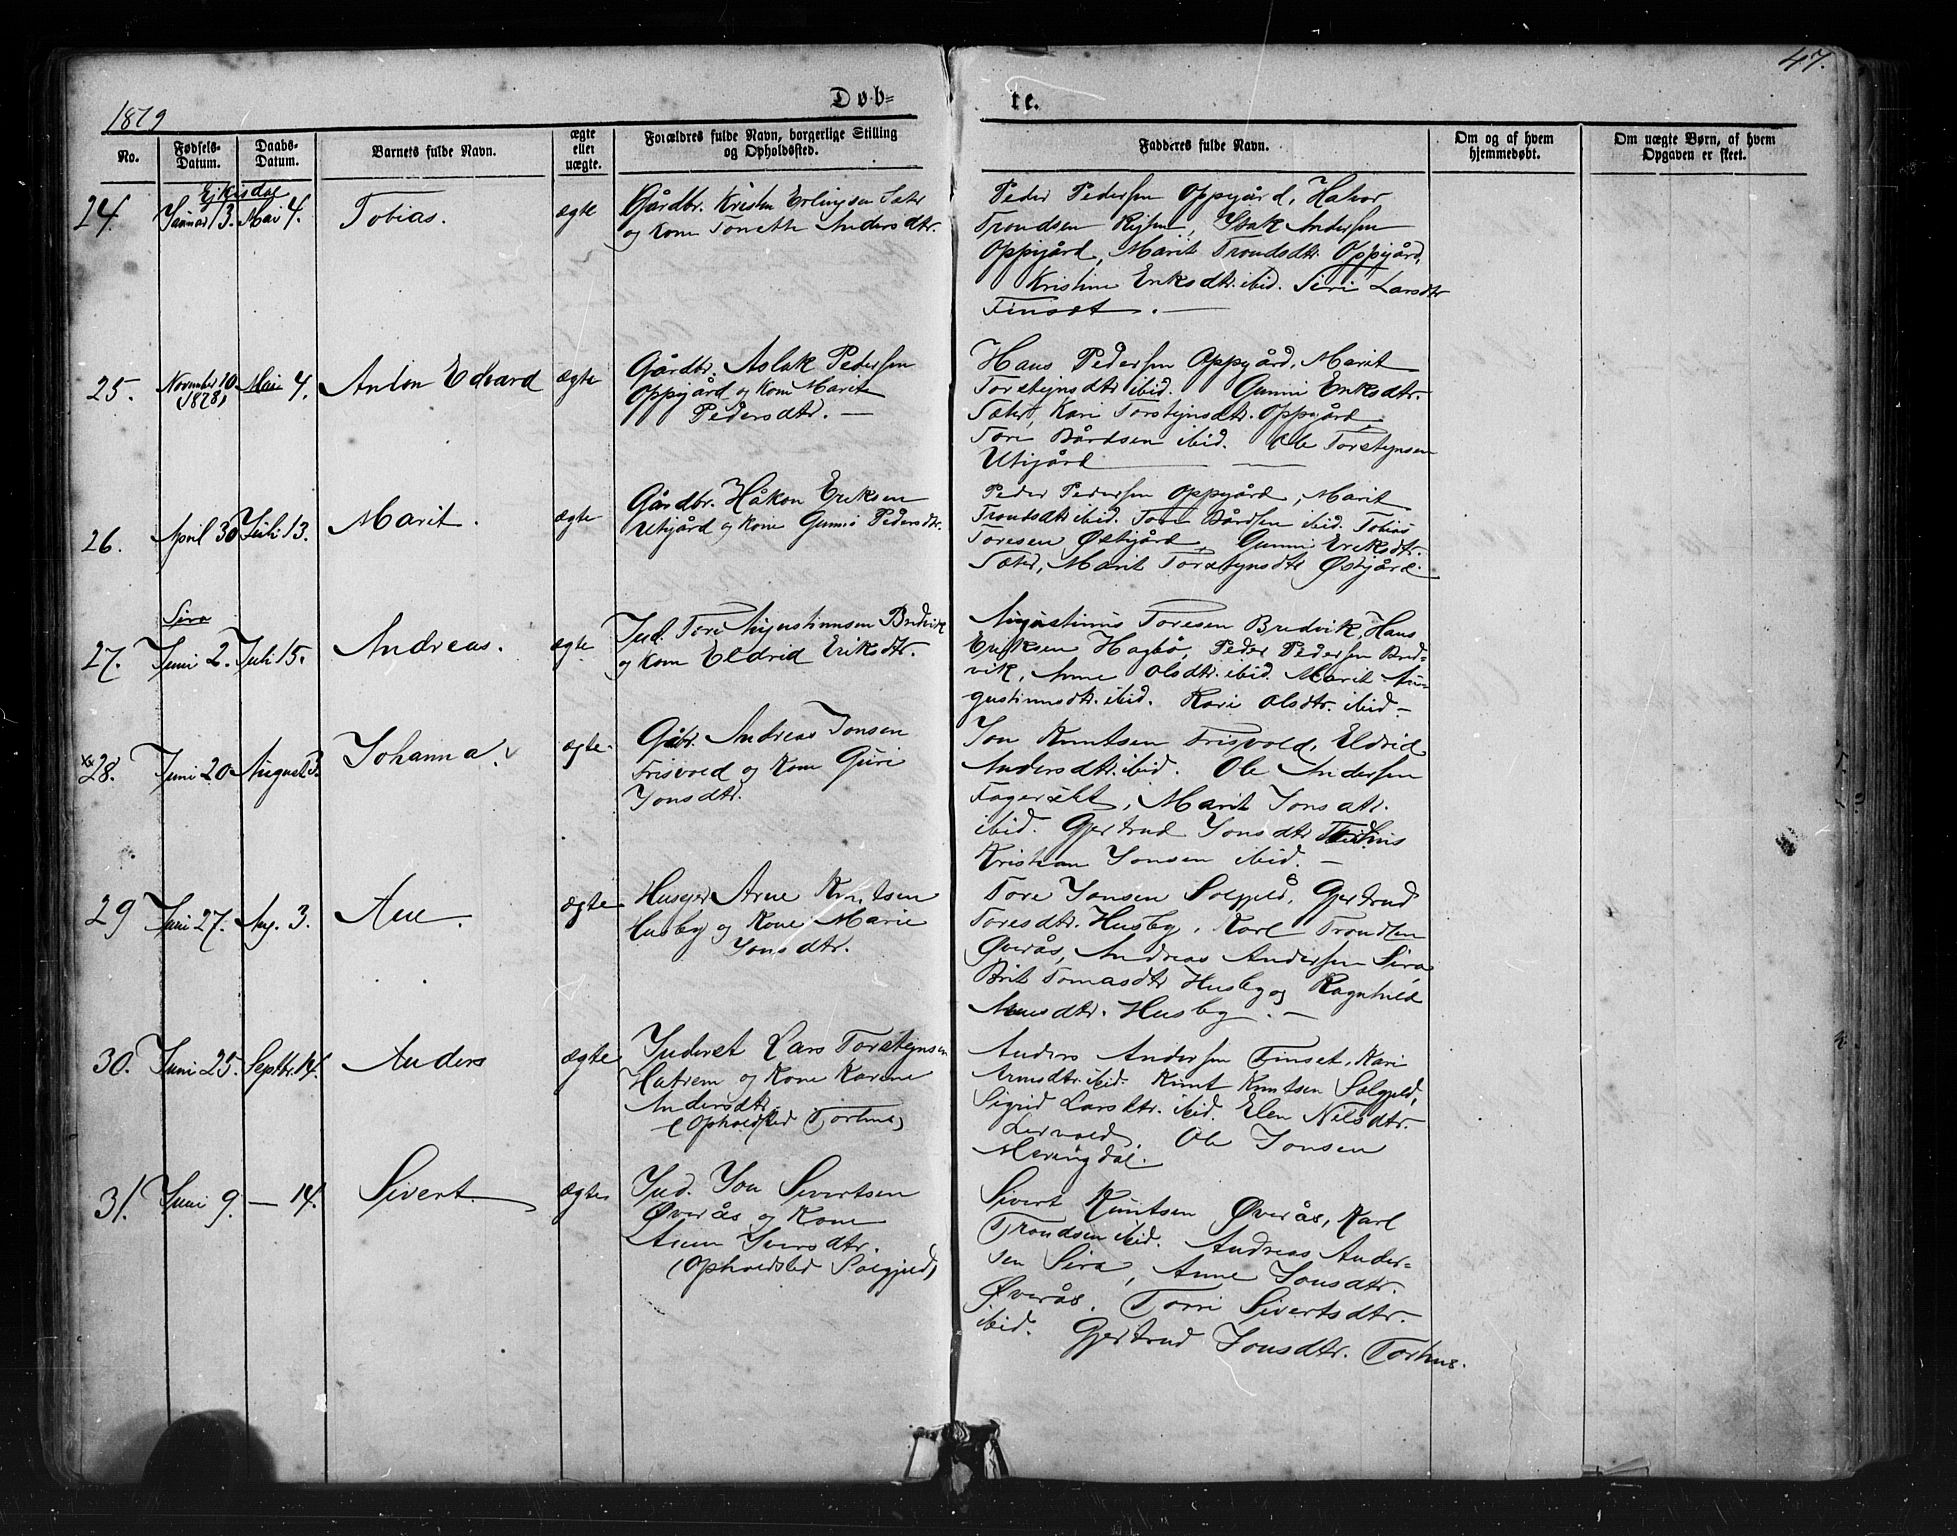 47.
1879
Døb=
te.
No.
Fødsels-
Datum.
Daabs-
Datum.
Barnets fulde Navn.
ægte
eller
uægte.
Forældres fulde Navn, borgerlige Stilling
og Opholdssted.
Fadderes fulde Navn.
Om og af hvem
hjemmedøbt.
Om uægte Børn, af hvem
Opgaven er skeet.
Ejkisdal
24. Januar 13. Mai 4. Tobias. ægte
Gårdbr. Kristen Erlingsen Sæter
og Kone Tonette Andersdtr.
Peder Pedersen Oppigård, Halvor
Trondsen Rejsen, Isak Andersen
Oppigård, Marit Trondsdtr. Oppigård,
Kristine Eriksdtr. ibid. Siri Larsdtr
Finset. —
25. November 10 (1878) Mai 4. Anton Edvard ægte
Gårdbr. Aslak Pedersen
Oppigård og Kone Marit
Pedersdtr. —
Hans Pedersen Oppigård, Marit
Torstejnsdtr ibid. Gunni Eriksdtr.
Sæter, Kari Torstejnsdtr. Oppigård,
Tore Bårdsen ibid. Ole Torstejnsen
Utigård —
26. April 30 Juli 13. Marit. ægte
Gårdbr. Håkon Eriksen
Utigård og Kone Gunni Pedersdtr.
Peder Pedersen Oppigård, Marit
Trondsdtr ibid. Tore Bårdsen ibid. Tobias
Toresen Østigård, Gunni Eriksdtr.
Sæter, Marit Torstejnsdtr Østigård.
Sira
27. Juni 2. Juli 15. Andreas. ægte
Ind. Tore Augustinusen Bredvik
og Kone Eldrid Eriksdtr.
Augustinus Toresen Bredvik, Hans
Eriksen Hagbø, Peder Pedersen Bred-
vik, Anne Olsdtr. ibid. Marit Au-
gustinusdtr. ibid. Kari Olsdtr. ibid —
28. Juni 20. August 3. Johanna. ægte.
Gåbr. Andreas Jonsen
Frisvold og Kone Guri
Jonsdtr.
Jon Knutsen Frisvold, Eldrid
Andersdtr. ibid. Ole Andersen
Fagerslet, Marit Jonsdtr.
ibid. Gjertrud Jonsdtr Torhus
Kristian Jonsen ibid. —
29 Juni 27. Aug. 3. Ane. ægte
Husejer Arne Knutsen
Husby og Kone Marie
Jonsdtr.
Tore Jonsen Solgjeld, Gjertrud
Toresdtr. Husby, Karl Trondsen
Øverås, Andreas Andersen Sira,
Brit Tomasdtr Husby og Ragnhild
Husby. —
30. Juni 25. Septbr. 14. Anders ægte
Inderst Lars Torstejnsen
Hatrem og Kone Karine
Andersdtr.
(Opholdsted Torhus)
Anders Andersen Finset, Kari
Arnesdtr. ibid. Knut Knutsen Solgjeld,
Sigrid Larsdtr. ibid. Elen Nilsdtr.
Lervold, Ole Jonsen
Meringdal.
31. Juni 9. — 14. Sivert. ægte
Ind. Jon Sivertsen
Øverås og Kone
Iversdtr.
(Opholdsted Solgjeld)
Sivert Knutsen Øverås, Karl
Trondsen ibid. Andreas Ander=
sen Sira, Anne Jonsdtr.
Øverås. Torri Sivertsdtr.
ibid. Gjertrud Jonsdtr. Torhus.